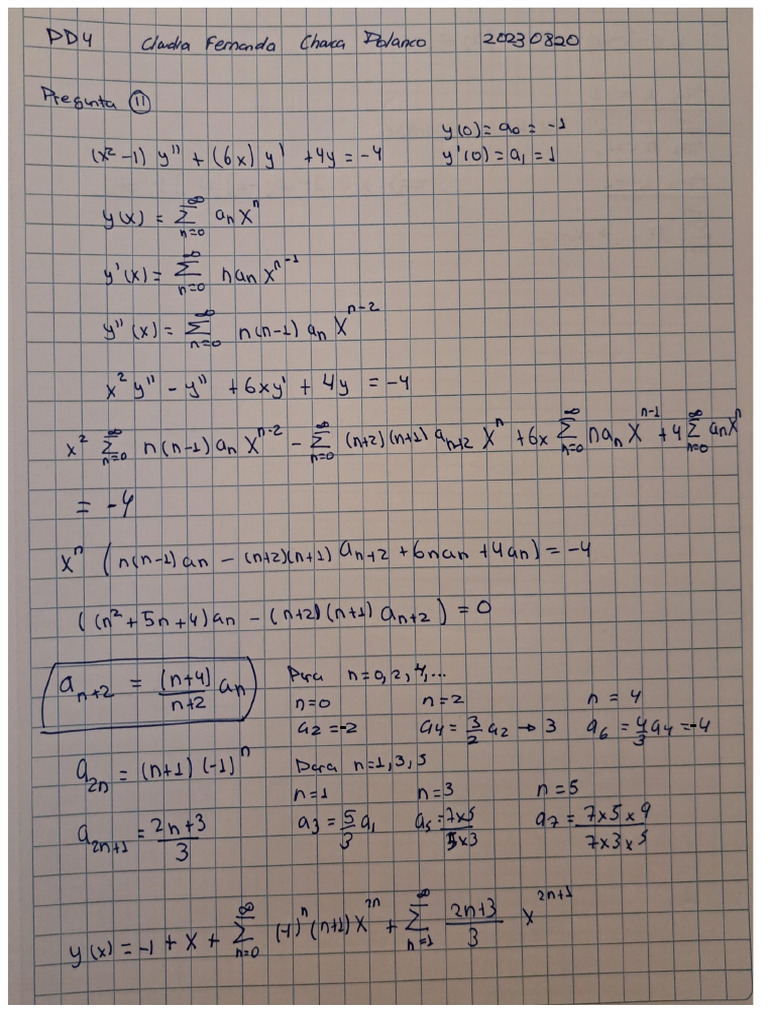 DD4 Claudia Fernanda Chaca Polanco 20230820
Pregunta ⑪
(x² - 1) y'' + (6x) y' + 4y = -4 y(0) = a₀ = -1
y'(0) = a₁ = 1
y(x) = ∑_{n=0}^{∞} aₙ xⁿ
y'(x) = ∑_{n=0}^{∞} n aₙ x^{n-1}
y''(x) = ∑_{n=0}^{∞} n(n-1) aₙ x^{n-2}
x² y'' - y'' + 6xy' + 4y = -4
x² ∑_{n=0}^{∞} n(n-1) aₙ x^{n-2} - ∑_{n=0}^{∞} (n+2)(n+1) a_{n+2} xⁿ + 6x ∑_{n=0}^{∞} n aₙ x^{n-1} + 4 ∑_{n=0}^{∞} aₙ xⁿ
= -4
xⁿ (n(n-1) aₙ - (n+2)(n+1) a_{n+2} + 6n aₙ + 4aₙ) = -4
((n² + 5n + 4) aₙ - (n+2)(n+1) a_{n+2}) = 0
a_{n+2} = (n+4)/(n+2) aₙ Para n = 0, 2, 4, ...
n=0 n=2 n=4
a₂ = -2 a₄ = 3/2 a₂ → 3 a₆ = 4/3 a₄ = -4
a_{2n} = (n+1)(-1)ⁿ Para n = 1, 3, 5
n=1 n=3 n=5
a_{2n+1} = (2n+3)/3 a₃ = 5/3 a₁ a₅ = (7x5)/(5x3) a₇ = (7x5x9)/(7x3x5)
y(x) = -1 + x + ∑_{n=0}^{∞} (-1)ⁿ (n+1) x^{2n} + ∑_{n=1}^{∞} (2n+3)/3 x^{2n+1}